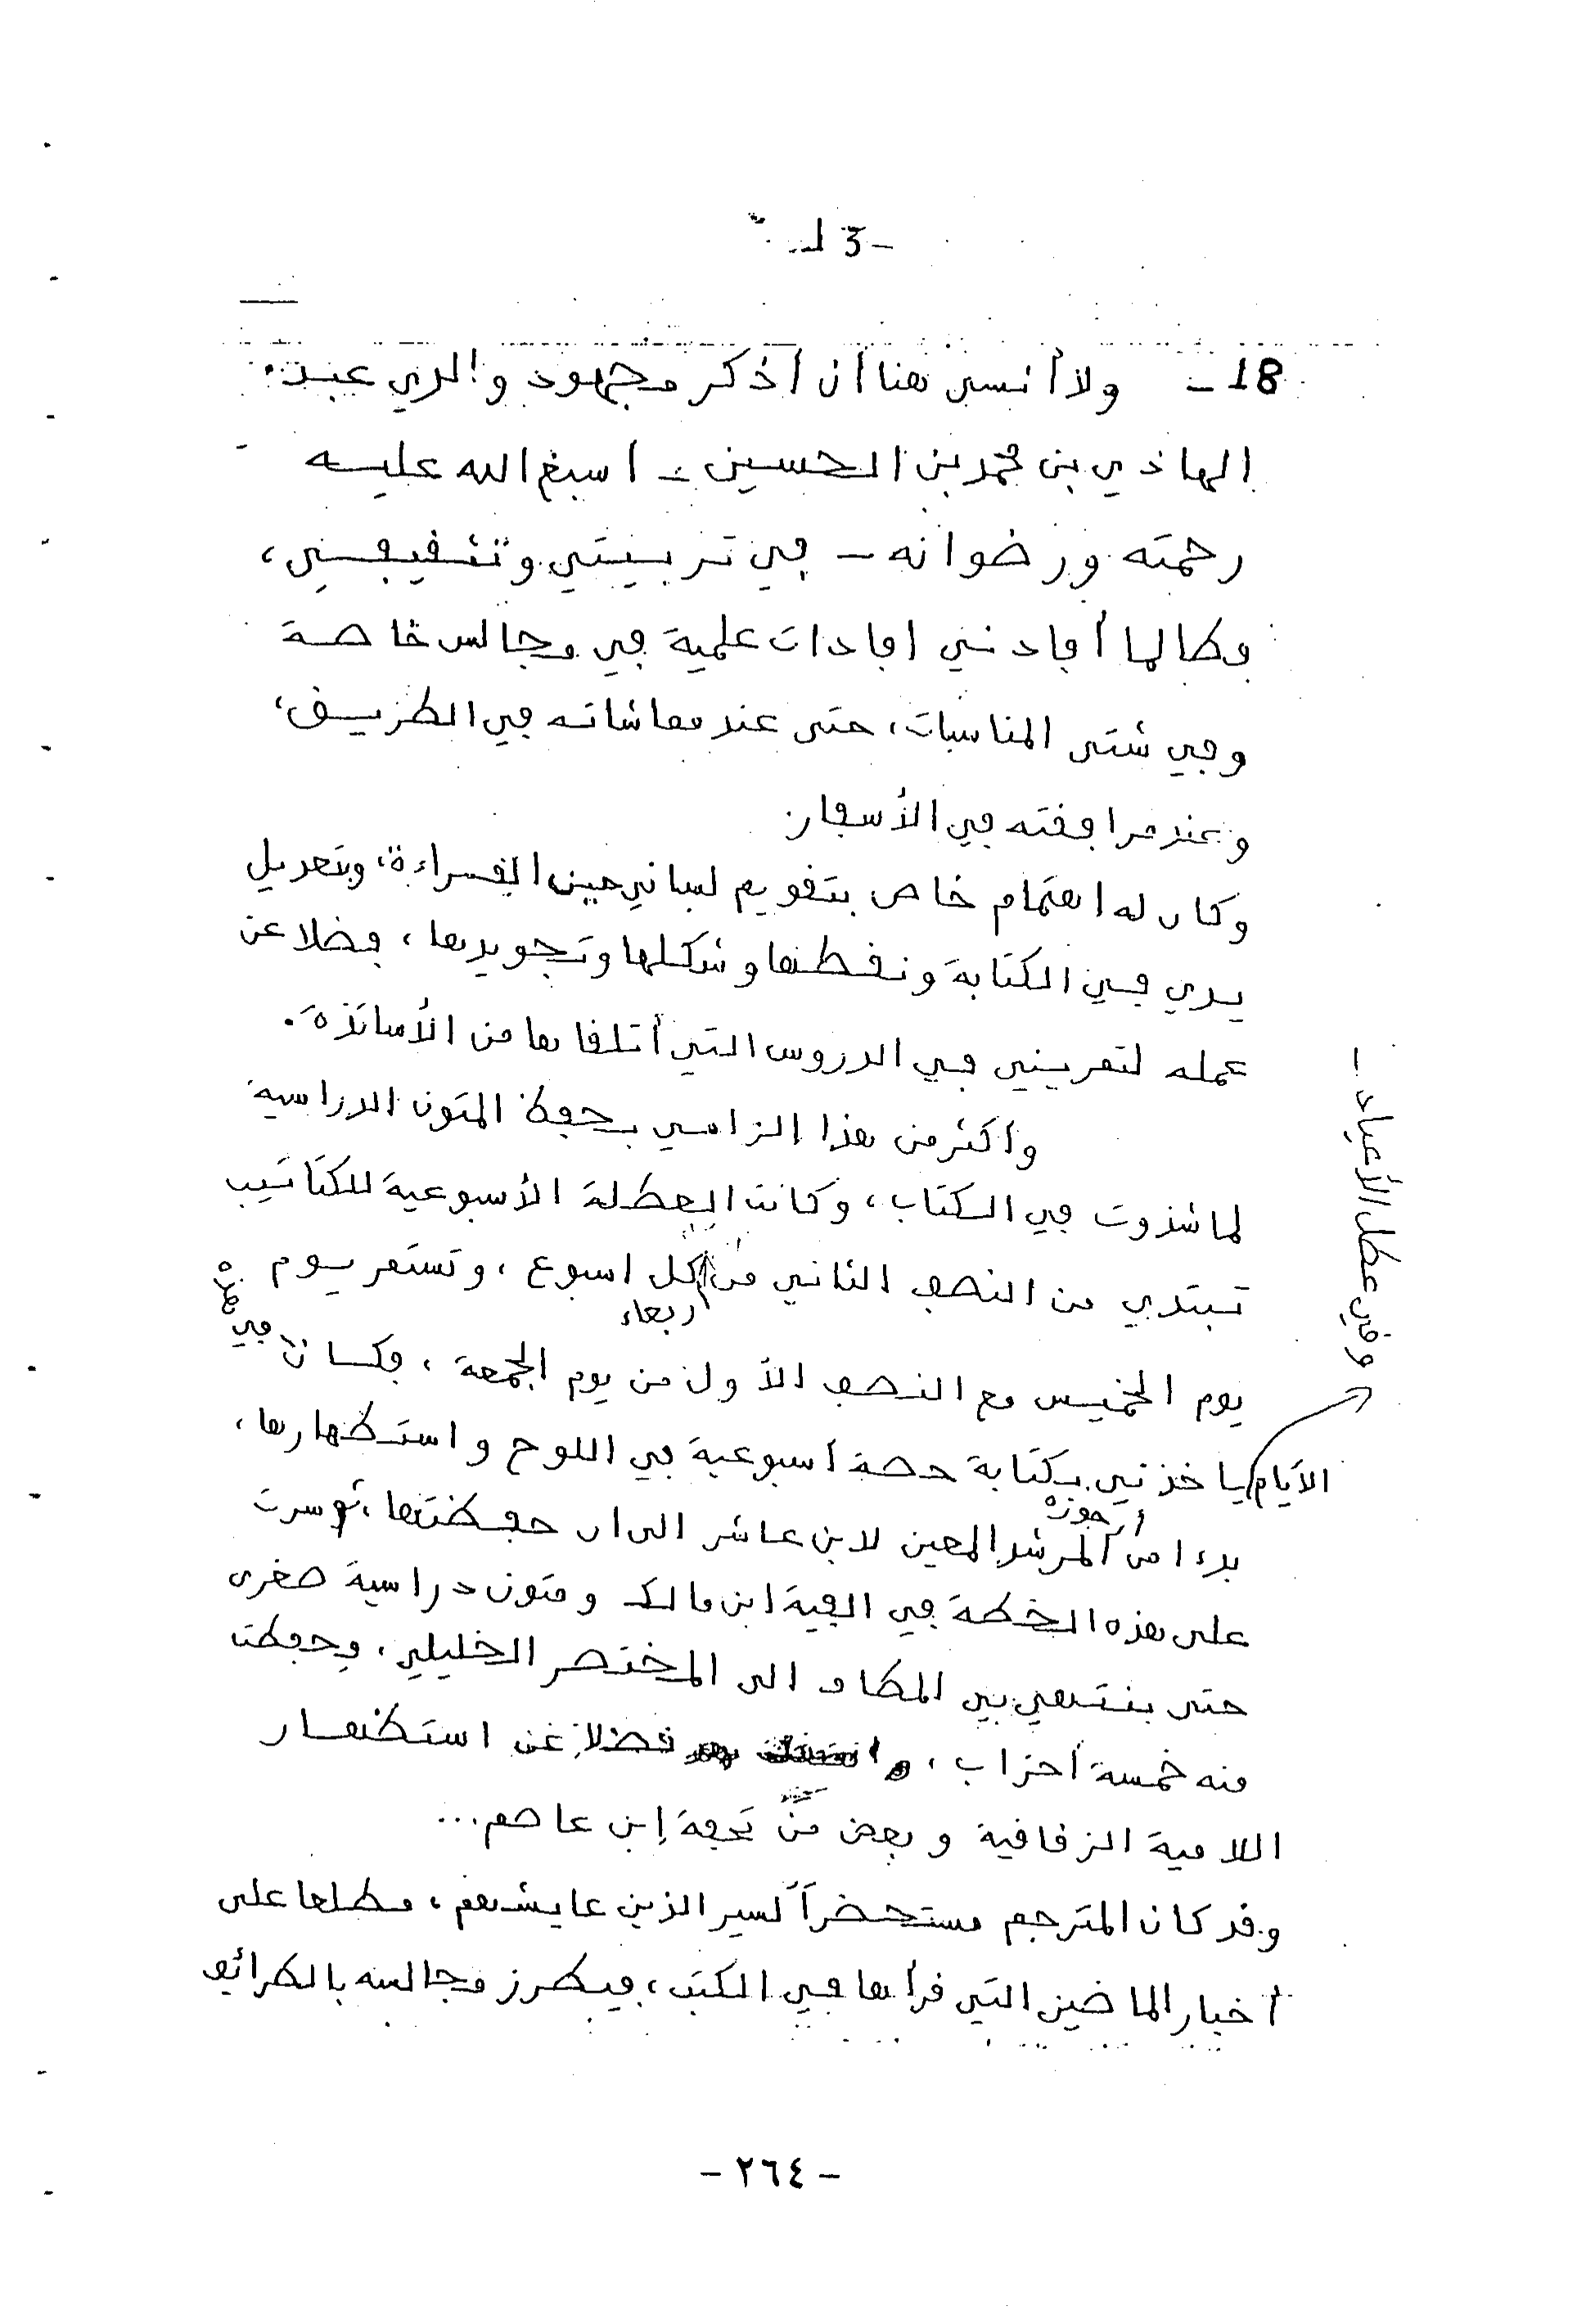 - 13 -
18 - ولا أنسى هنا أن أذكر مجهود والدي عبد
الهادي بن محمد بن الحسين - اسبغ الله عليه
رحمته ورضوانه - في تربيتي وتثقيفي،
وطالما أفادني افادات علمية في مجالس خاصة
وفي شتى المناسبات، حتى عند مماشاته في الطريق،
وعند مرافقته في الأسفار.
وكان له اهتمام خاص بتقويم لساني حين القراءة، وبتعديل
يدي في الكتابة ونقطها وشكلها وتجويدها، فضلا عن
عمله لتمريني في الدروس التي أتلقاها من الأساتذة.
وأكثر من هذا الزامي بحفظ المتون الدراسية
لما شذوت في الكتاب، وكانت العطلة الأسبوعية للكتاتيب
تبتدي من النصف الثاني من اربعاء كل اسبوع، وتستمر يوم
يوم الخميس مع النصف الأول من يوم الجمعة، فكان في هذه
الأيام وفي عطل الأعياد - ياخذني بكتابة حصة أسبوعية في اللوح واستظهارها،
بدءا من أرجوزة المرشد المعين لابن عاشر الى ان حفظتها، ثم سرت
على هذه الخطة في الفية ابن مالك ومتون دراسية صغرى
حتى ينتهي بي المطاف الى المختصر الخليلي، وحفظت
منه خمسة أحزاب، فضلا عن استظهار
اللامية الزقاقية وبعض من تحفة إبن عاصم...
وقد كان المترجم مستحضراً لسير الذين عايشهم، مطلعا على
أخبار الماضين التي قرأها في الكتب، فيطرز مجالسه بالطرائف
- ٢٦٤ -